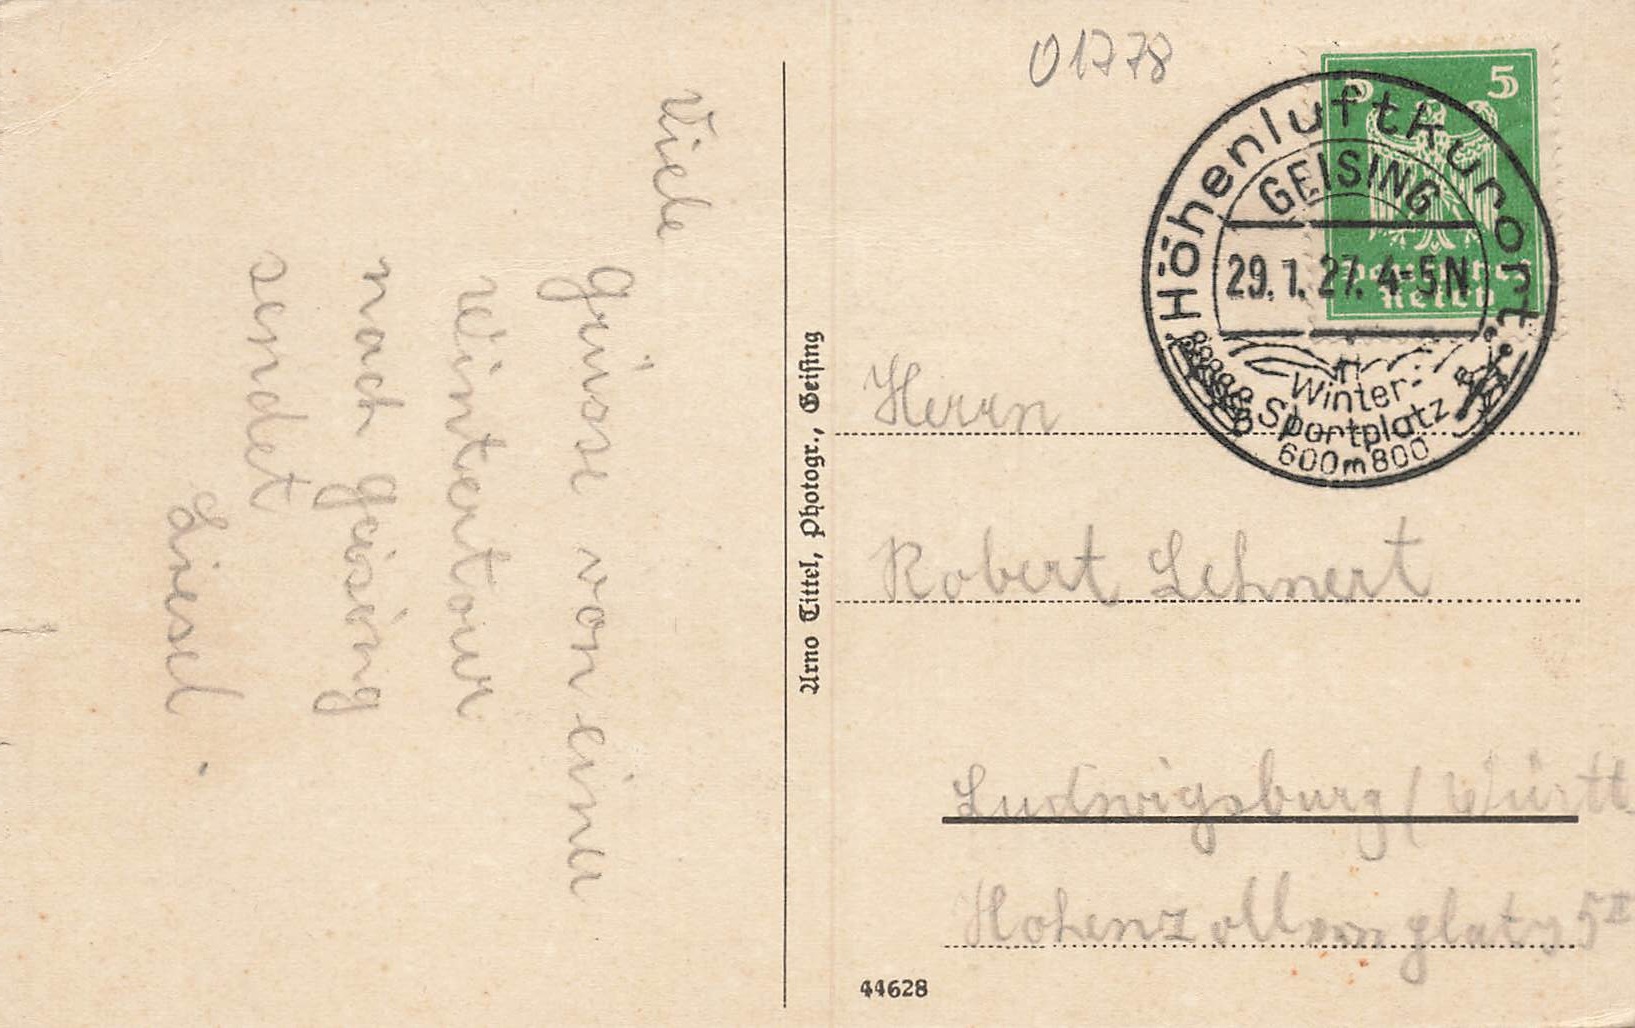 Viele
Grüsse von einer
Wintertour
nach Geising
sendet
Liesel.
Arno Tittel, Photogr., Geising
01778
5 5
Deutsches
Reich
Höhenluftkurort.
GEISING
29.1.27.4-5N
Winter-
Sportplatz
600m800
Herrn
Robert Lehnert
Ludwigsburg / Württ
Hohenzollernplatz 5 II
44628